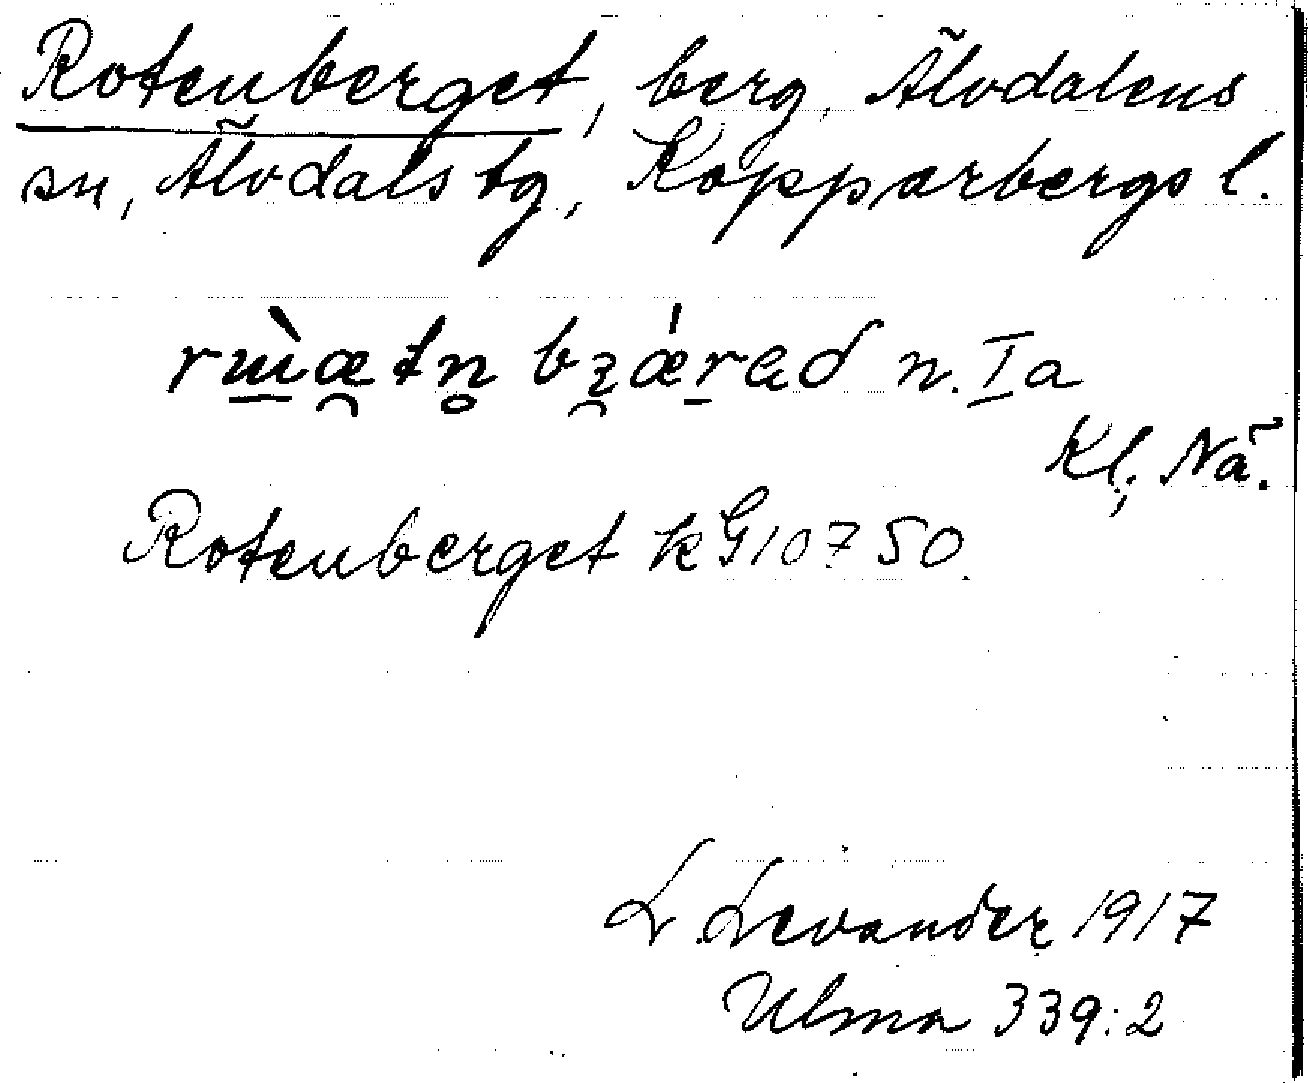 Rotenberget, berg, Älvdalens
sn, Älvdals tg, Kopparbergs l.
n. Ia
Kl, Nä.
Rotenberget kG10750
L. Levander 1917
Ulma 339:2